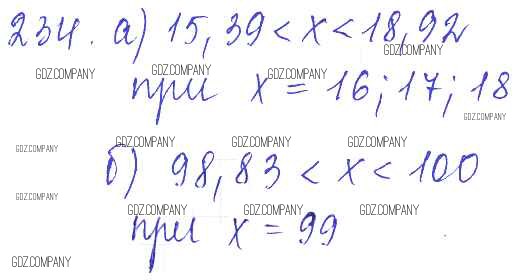 234. а) 15,39 < x < 18,92
GDZ.COMPANY
GDZ.COMPANY GDZ.COMPANY GDZ.COMPANY
при x = 16; 17; 18
GDZ.COMPANY
GDZ.COMPANY GDZ.COMPANY GDZ.COMPANY GDZ.COMPANY
б) 98,83 < x < 100
GDZ.COMPANY
GDZ.COMPANY GDZ.COMPANY GDZ.COMPANY
при x = 99
GDZ.COMPANY